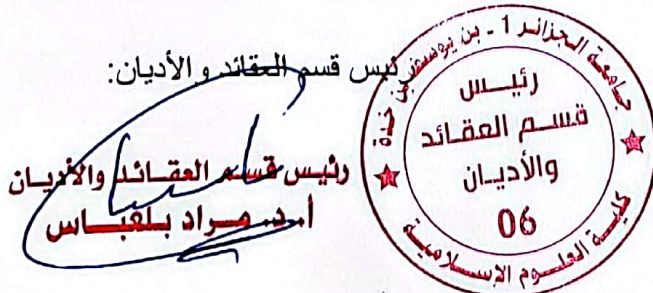 رئيس قسم العقائد و الأديان:
رئيس قسم العقائد والأديان
أ.د. مراد بلعباس
جامعة الجزائر 1 - بن يوسف بن خدة
رئيس
قسم العقائد
والأديان
06
كلية العلوم الإسلامية